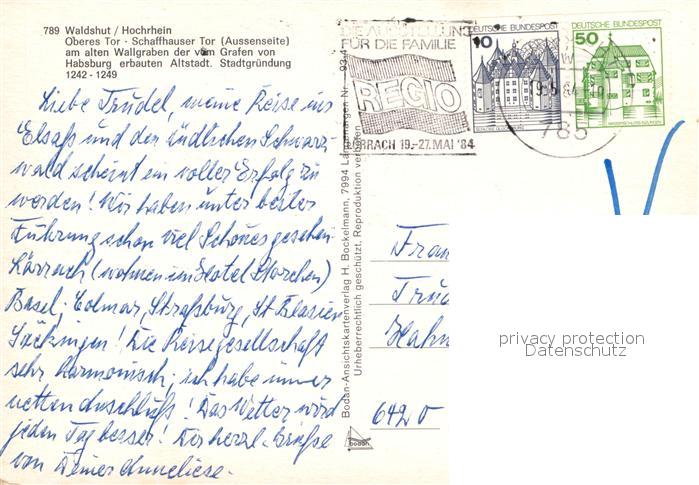 789 Waldshut / Hochrhein
Oberes Tor - Schaffhauser Tor (Aussenseite)
am alten Wallgraben der vom Grafen von
Habsburg erbauten Altstadt. Stadtgründung
1242 - 1249
Liebe Trudel, meine Reise ins
Elsaß und den südlichen Schwarz-
wald scheint ein voller Erfolg zu
werden! Wir haben unter bester
Führung schon viel Schönes gesehen.
Lörrach (wohnen im Hotel Storchen)
Basel, Colmar, Straßburg, St. Blasien
Säckingen! Die Reisegesellschaft
sehr harmonisch; ich habe immer
netten Anschluß! Das Wetter wird
jeden Tag besser! Dir herzl. Grüße
von Deiner Anneliese.
DIE AUSSTELLUNG
FÜR DIE FAMILIE
REGIO
LÖRRACH 19.-27. MAI '84
DEUTSCHE BUNDESPOST
10
DEUTSCHE BUNDESPOST
50
785
Bodan-Ansichtskartenverlag H. Bockelmann, 7994 Langenargen Nr.
Urheberrechtlich geschützt, Reproduktion verboten
bodan
Frau
Trud
Hahn
6420
privacy protection
Datenschutz